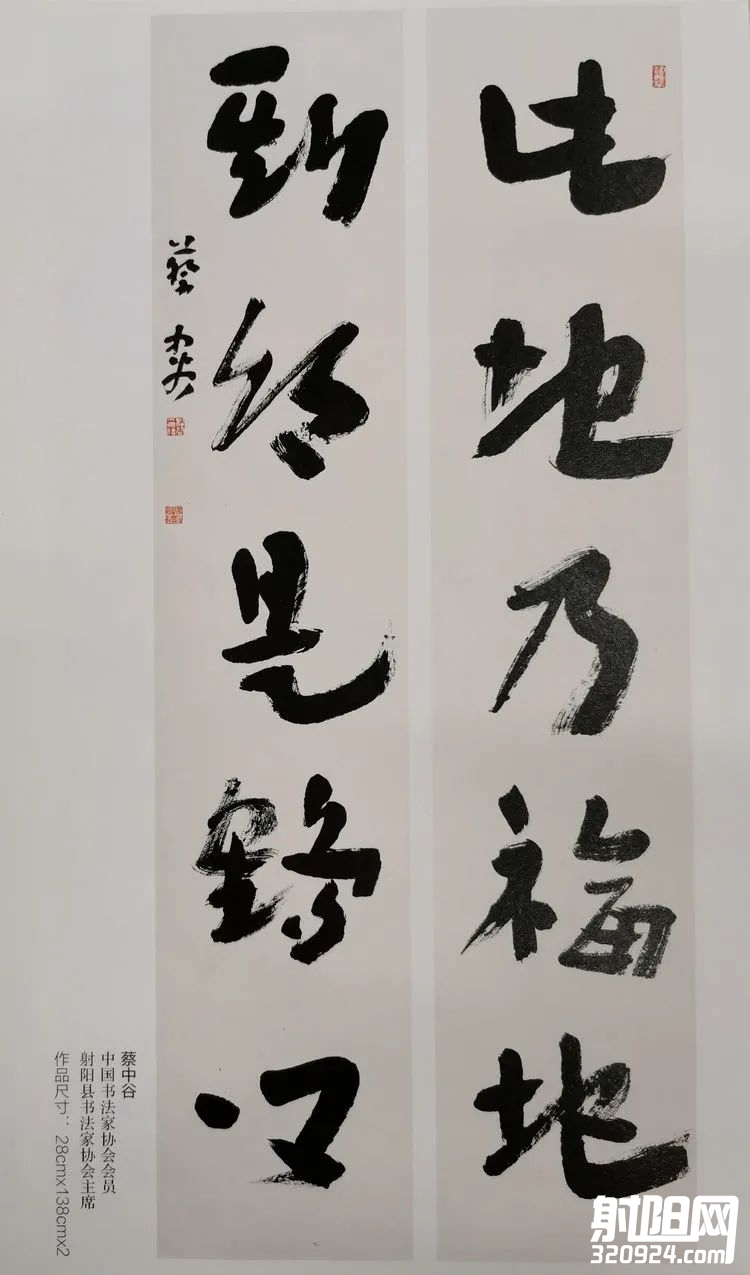 此地乃福地
到
是鹤
蔡中谷
蔡中谷
中国书法家协会会员
射阳县书法家协会主席
作品尺寸：28cmx138cmx2
射阳网
320924.com